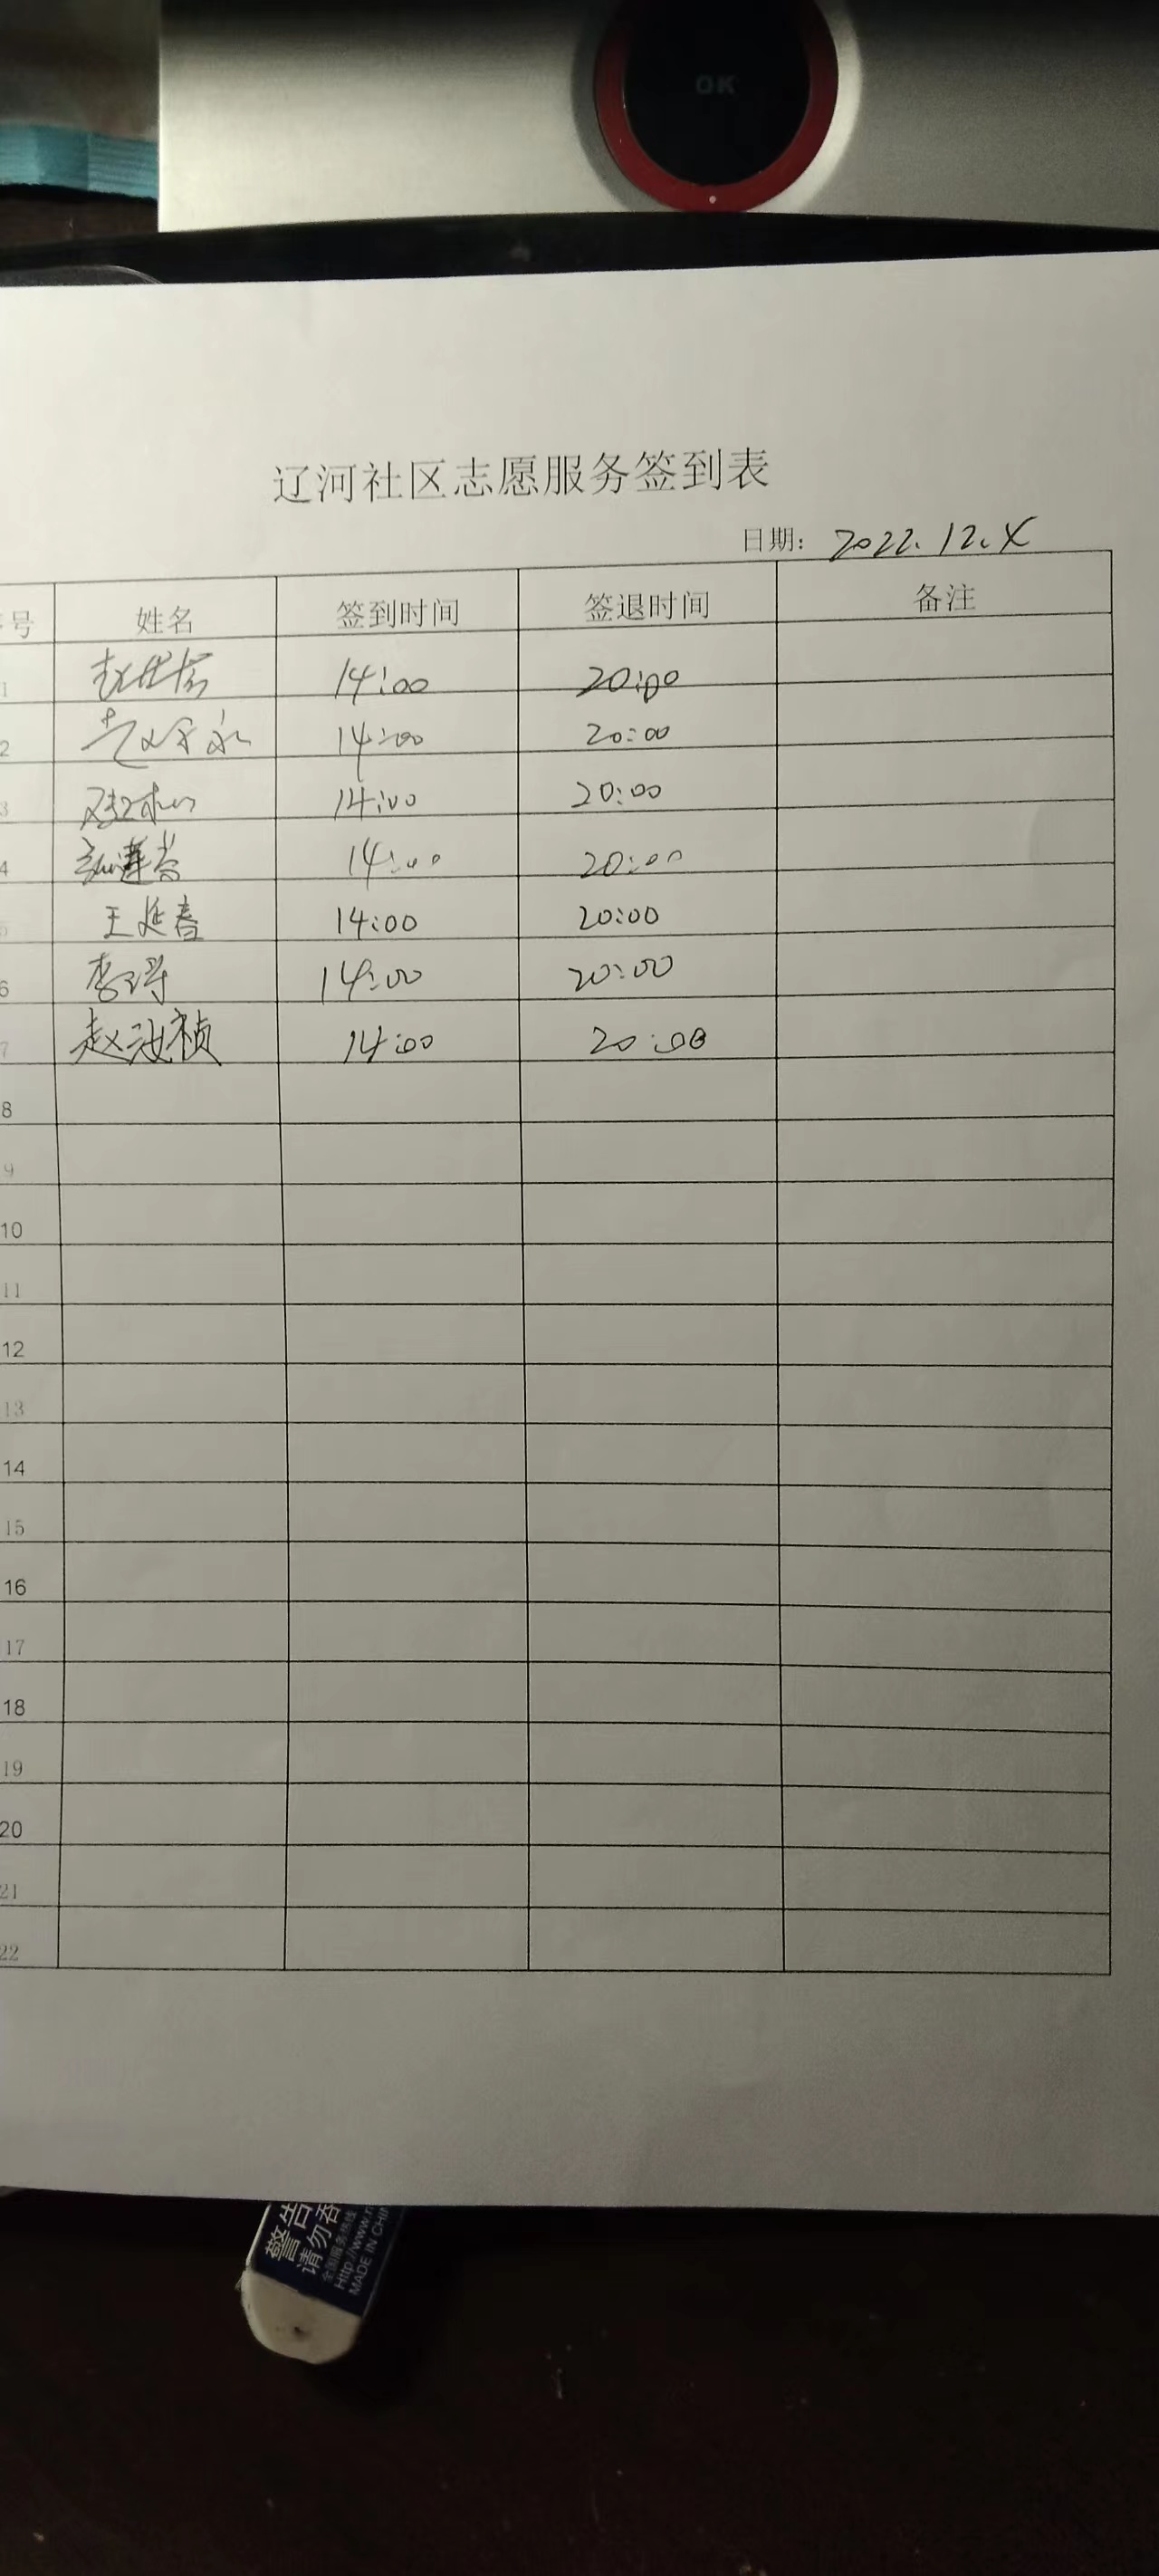 OK
辽河社区志愿服务签到表
日期: 2022.12.
号 姓名 签到时间 签退时间 备注
1 14:00 20:00
2 14:00 20:00
3 14:00 20:00
4 14:00 20:00
5 王延春 14:00 20:00
6 14:00 20:00
7 赵汝祯 14:00 20:00
8
9
10
11
12
13
14
15
16
17
18
19
20
21
22
警告
请勿吞
全国服务热线
Http://www.
MADE IN CHIN